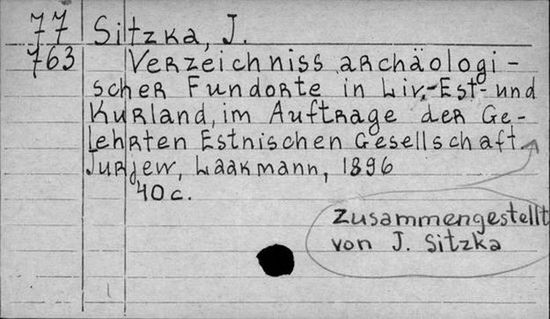 77 Sitzka, J.
763 Verzeichniss archäologi-
scher Fundorte in Liv,-Est- und
Kurland, im Auftrage der Ge-
lehrten Estnischen Gesellschaft
Jurjew, Laakmann, 1896
40 c.
Zusammengestellt
von J. Sitzka